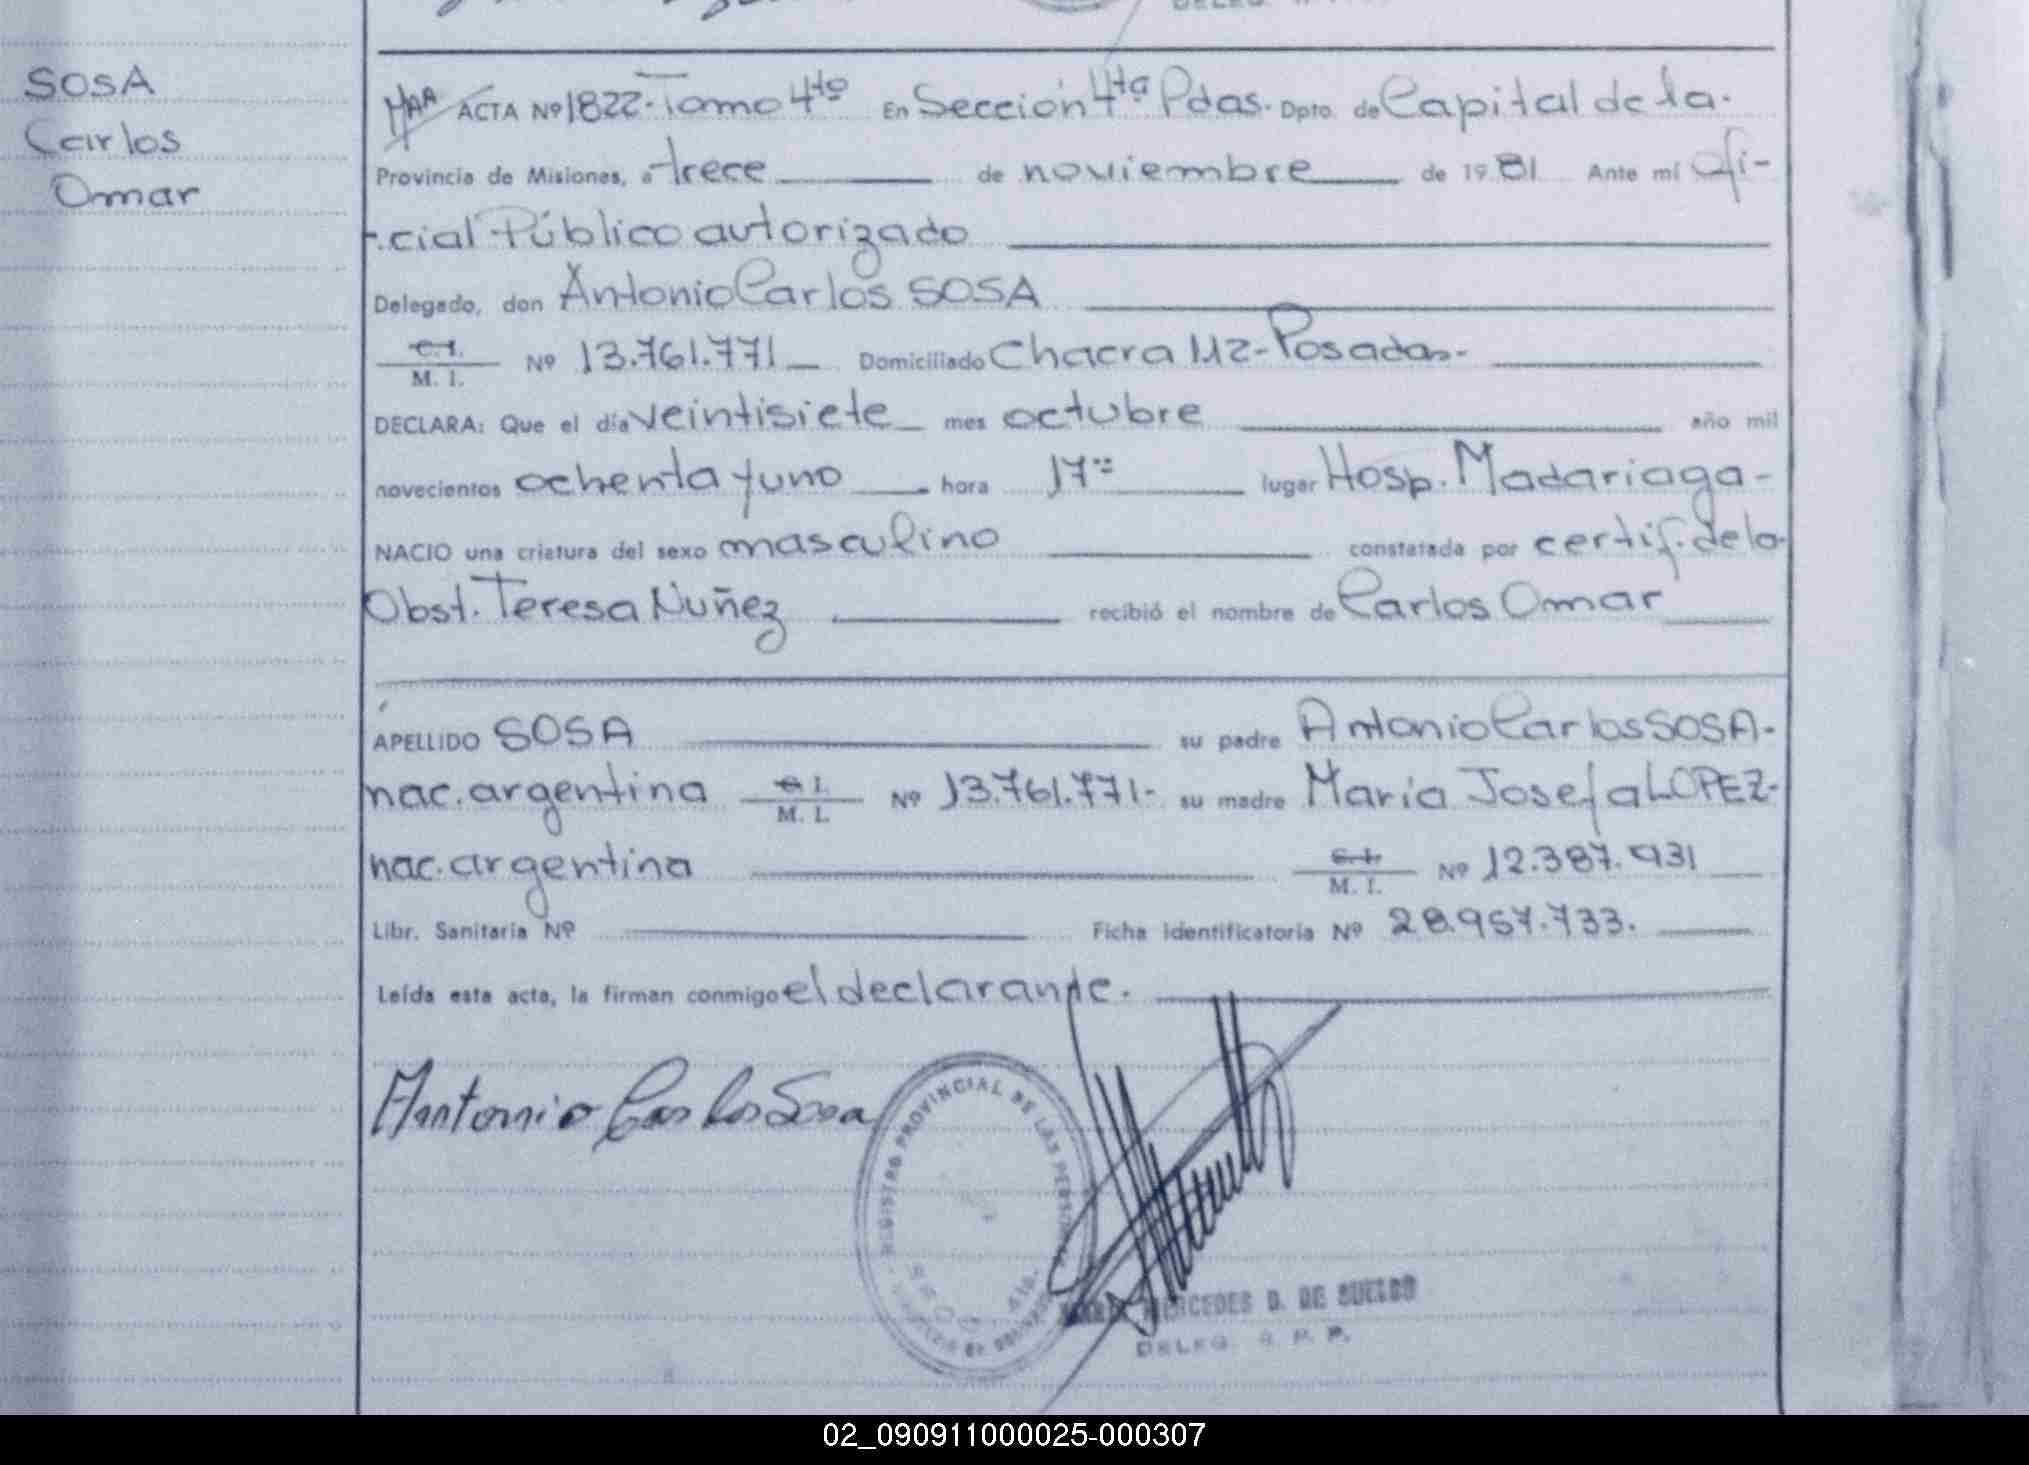 SOSA
Carlos
Omar
ACTA Nº 1822- Tomo 4to En Sección 4ta Pdas. Dpto. de Capital de la.
Provincia de Misiones, a trece de noviembre de 1981 Ante mí Ofi-
cial Público autorizado
Delegado, don Antonio Carlos SOSA
C.I.
M. I. Nº 13.761.771 Domiciliado Chacra 112-Posadas-
DECLARA: Que el día veintisiete mes octubre año mil
novecientos ochenta y uno hora 17 lugar Hosp. Madariaga-
NACIO una criatura del sexo masculino constatada por certif. de la
Obst. Teresa Nuñez recibió el nombre de Carlos Omar
APELLIDO SOSA su padre Antonio Carlos SOSA-
nac. argentina C. I.
M. I. Nº 13.761.771- su madre María Josefa LOPEZ-
nac. argentina C. I.
M. I. Nº 12.387.931
Libr. Sanitaria Nº Ficha Identificatoria Nº 28.957.733.
Leída esta acta, la firman conmigo el declarante.
Antonio Carlos Sosa
REGISTRO PROVINCIAL DE LAS PERSONAS
MERCEDES D. DE SUELDO
DELEG. R. P. P.
02_090911000025-000307